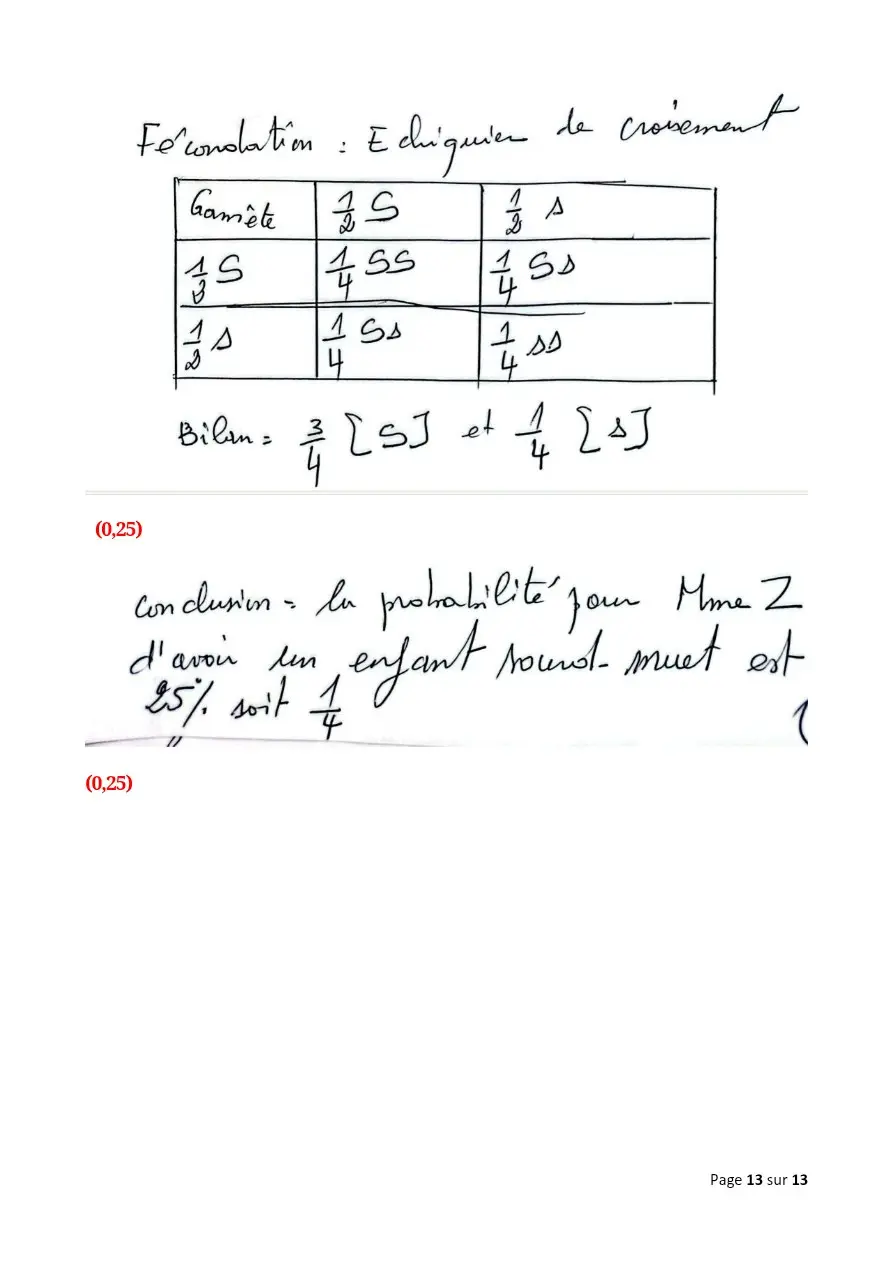 Fécondation : Echiquier de croisement
Gamète | 1/2 S | 1/2 s
1/2 S | 1/4 SS | 1/4 Ss
1/2 s | 1/4 Ss | 1/4 ss
Bilan = 3/4 [S] et 1/4 [s]
(0,25)
conclusion = la probabilité pour Mme Z
d'avoir un enfant sourd-muet est
25% soit 1/4
(0,25)
Page 13 sur 13